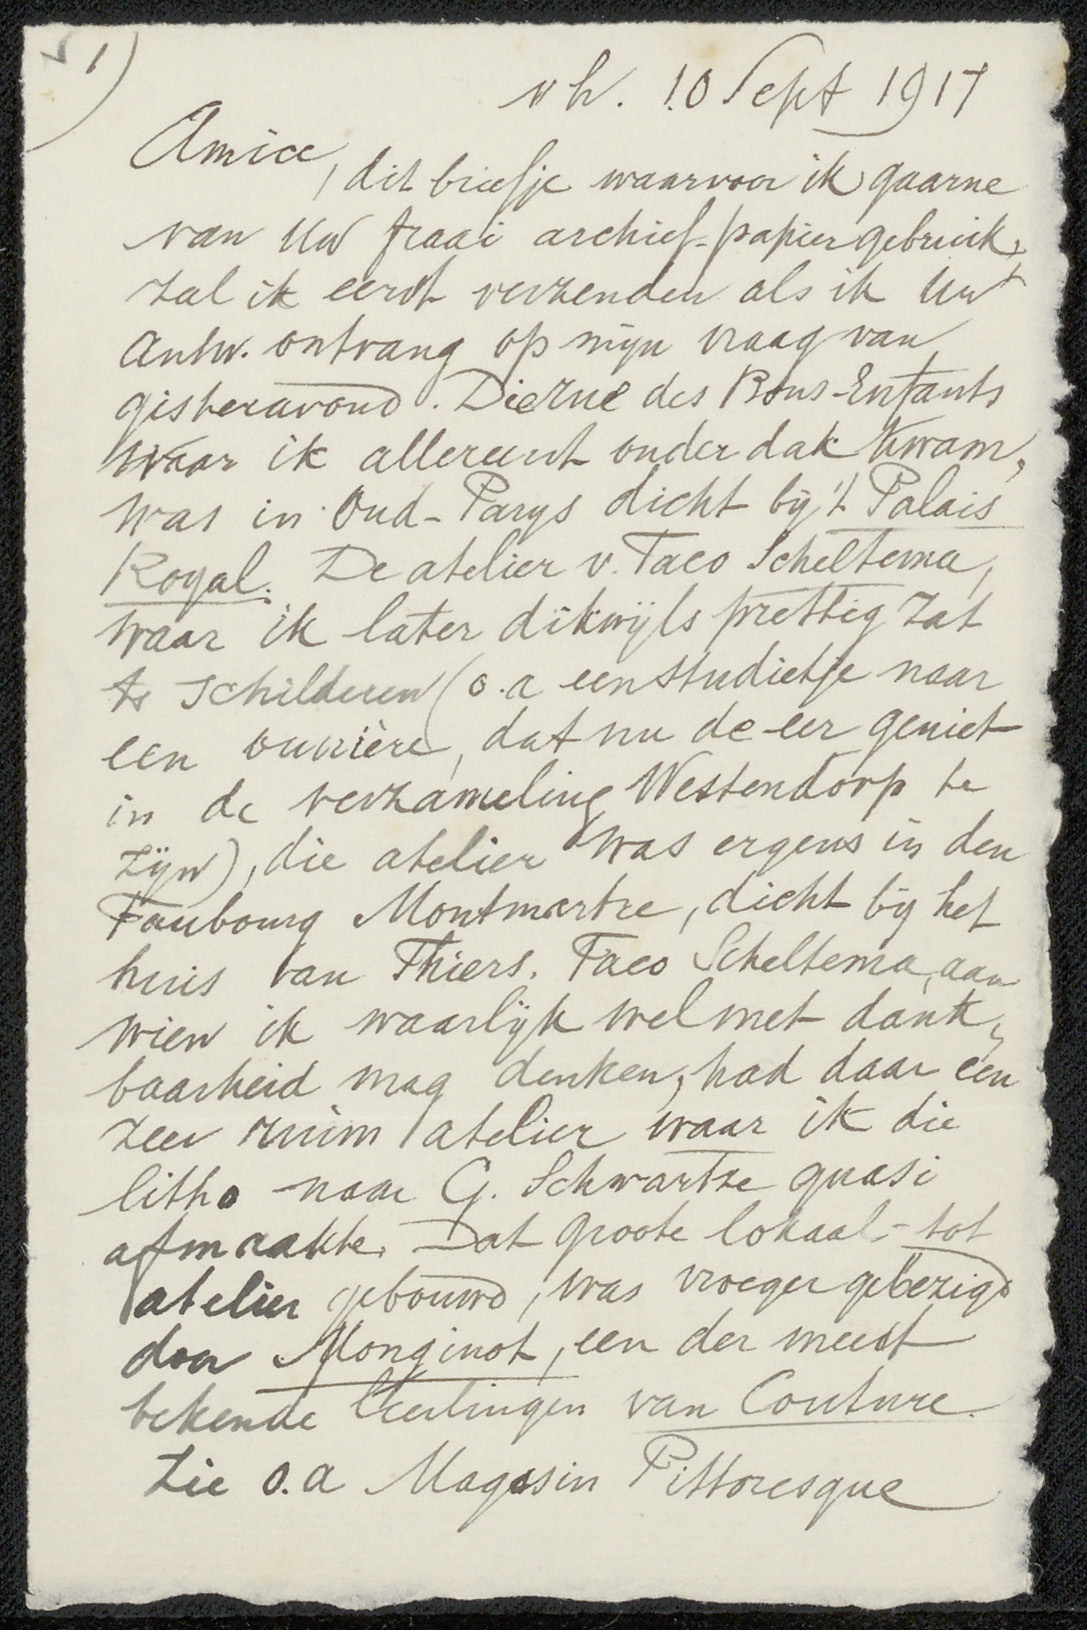 1)
vh. 10 Sept 1917
Amice, dit briefje waarvoor ik gaarne
van Uw fraai archief-papier gebruik,
zal ik eerst verzenden als ik Uw
Antw. ontvang op mijn vraag van
gisteravond. Die Rue des Bons-Enfants
waar ik allereerst onder dak kwam,
was in Oud-Parys dicht bij 't Palais
Royal. De atelier v. Taco Scheltema,
waar ik later dikwijls prettig zat
te schilderen (o.a een studietje naar
een ouvrière, dat nu de eer geniet
in de verzameling Westendorp te
zijn), die atelier was ergens in den
Faubourg Montmartre, dicht bij het
huis van Thiers. Taco Scheltema, aan
wien ik waarlijk wel met dank-
baarheid mag denken, had daar een
zeer ruim atelier waar ik die
litho naar G. Schwartze quasi
afmaakte. Dat groote lokaal - tot
atelier gebouwd, was vroeger gebezigd
door Monginot, een der meest
bekende leerlingen van Couture.
Zie o.a Magasin Pittoresque